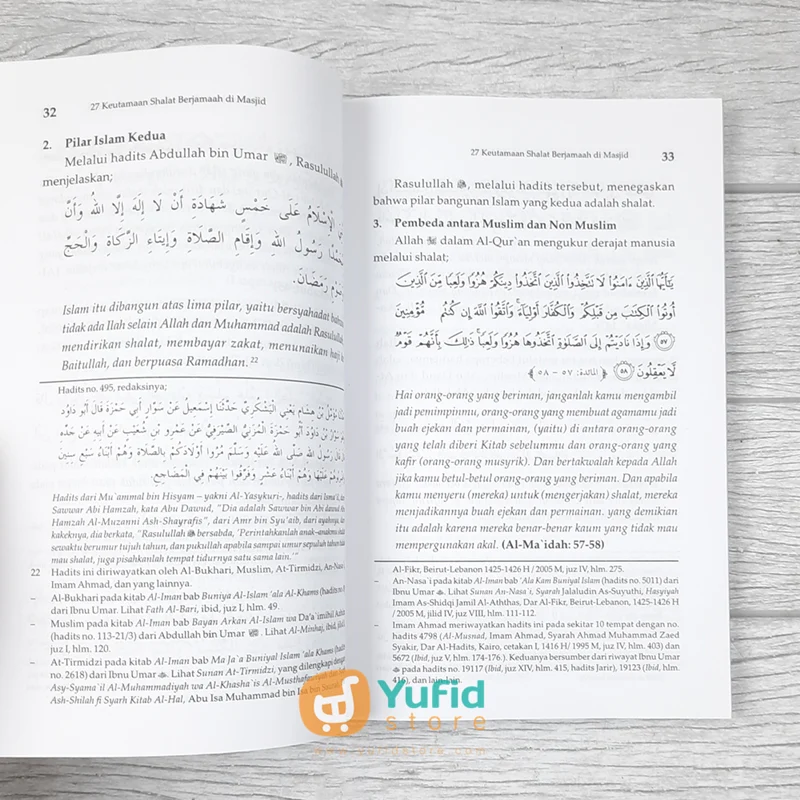 32 27 Keutamaan Shalat Berjamaah di Masjid
2. Pilar Islam Kedua
Melalui hadits Abdullah bin Umar ﷺ, Rasulullah
menjelaskan;
الإِسْلَامُ عَلَى خَمْسٍ شَهَادَةِ أَنْ لَا إِلَهَ إِلَّا اللهُ وَأَنَّ
رَسُولُ اللهِ وَإِقَامِ الصَّلَاةِ وَإِيتَاءِ الزَّكَاةِ وَالْحَجِّ
رَمَضَانَ.
Islam itu dibangun atas lima pilar, yaitu bersyahadat bahwa
tidak ada Ilah selain Allah dan Muhammad adalah Rasulullah
mendirikan shalat, membayar zakat, menunaikan haji ke
Baitullah, dan berpuasa Ramadhan. 22
Hadits no. 495, redaksinya;
بْنُ هِشَامٍ يَعْنِي الْيَشْكُرِيَّ حَدَّثَنَا إِسْمَعِيلُ عَنْ سَوَّارٍ أَبِي حَمْزَةَ قَالَ أَبُو دَاوُدَ
بْنُ دَاوُدَ أَبُو حَمْزَةَ الْمُزَنِيُّ الصَّيْرَفِيُّ عَنْ عَمْرِو بْنِ شُعَيْبٍ عَنْ أَبِيهِ عَنْ جَدِّهِ
قَالَ رَسُولُ اللهِ صَلَّى اللهُ عَلَيْهِ وَسَلَّمَ مُرُوا أَوْلَادَكُمْ بِالصَّلَاةِ وَهُمْ أَبْنَاءُ سَبْعِ سِنِينَ
وَاضْرِبُوهُمْ عَلَيْهَا وَهُمْ أَبْنَاءُ عَشْرٍ وَفَرِّقُوا بَيْنَهُمْ فِي الْمَضَاجِعِ.
Hadits dari Mu`ammal bin Hisyam – yakni Al-Yasykuri-, hadits dari Isma`il,
Sawwar Abi Hamzah, kata Abu Dawud, "Dia adalah Sawwar bin Abi Dawud
Hamzah Al-Muzanni Ash-Shayrafis", dari Amr bin Syu'aib, dari ayahnya,
kakeknya, dia berkata, "Rasulullah ﷺ bersabda, 'Perintahkanlah anak–anakmu
sewaktu berumur tujuh tahun, dan pukullah apabila sampai umur sepuluh tahun
shalat, juga pisahkanlah tempat tidurnya satu sama lain.'"
22 Hadits ini diriwayatkan oleh Al-Bukhari, Muslim, At-Tirmidzi, An-Nasa`i
Imam Ahmad, dan yang lainnya.
– Al-Bukhari pada kitab Al-Iman bab Buniya Al-Islam 'ala Al-Khams (hadits no.
dari Ibnu Umar. Lihat Fath Al-Bari, ibid, juz I, hlm. 49.
– Muslim pada kitab Al-Iman bab Bayan Arkan Al-Islam wa Da'a`imihil
(hadits no. 113-21/3) dari Abdullah bin Umar. Lihat Al-Minhaj, ibid,
juz I, hlm. 120.
– At-Tirmidzi pada kitab Al-Iman bab Ma Ja`a Buniyal Islam 'ala Khams (hadits
no. 2618) dari Ibnu Umar. Lihat Sunan At-Tirmidzi, yang dilengkapi dengan
Asy-Syama`il Al-Muhammadiyah wa Al-Khasha`is Al-Musthafawiyah
Ash-Shilah fi Syarh Kitab Al-Hal, Abu Isa Muhammad bin Isa bin
27 Keutamaan Shalat Berjamaah di Masjid 33
Rasulullah ﷺ, melalui hadits tersebut, menegaskan
bahwa pilar bangunan Islam yang kedua adalah shalat.
3. Pembeda antara Muslim dan Non Muslim
Allah ﷻ dalam Al-Qur`an mengukur derajat manusia
melalui shalat;
يَٰٓأَيُّهَا ٱلَّذِينَ ءَامَنُوا۟ لَا تَتَّخِذُوا۟ ٱلَّذِينَ ٱتَّخَذُوا۟ دِينَكُمْ هُزُوًا وَلَعِبًا مِّنَ ٱلَّذِينَ
أُوتُوا۟ ٱلْكِتَٰبَ مِن قَبْلِكُمْ وَٱلْكُفَّارَ أَوْلِيَآءَ ۚ وَٱتَّقُوا۟ ٱللَّهَ إِن كُنتُم مُّؤْمِنِينَ
﴿٥٧﴾ وَإِذَا نَادَيْتُمْ إِلَى ٱلصَّلَوٰةِ ٱتَّخَذُوهَا هُزُوًا وَلَعِبًا ۚ ذَٰلِكَ بِأَنَّهُمْ قَوْمٌ
لَّا يَعْقِلُونَ ﴿٥٨﴾ ﴿المائدة: ٥٧ – ٥٨﴾
Hai orang-orang yang beriman, janganlah kamu mengambil
jadi pemimpinmu, orang-orang yang membuat agamamu jadi
buah ejekan dan permainan, (yaitu) di antara orang-orang
yang telah diberi Kitab sebelummu dan orang-orang yang
kafir (orang-orang musyrik). Dan bertakwalah kepada Allah
jika kamu betul-betul orang-orang yang beriman. Dan apabila
kamu menyeru (mereka) untuk (mengerjakan) shalat, mereka
menjadikannya buah ejekan dan permainan. yang demikian
itu adalah karena mereka benar-benar kaum yang tidak mau
mempergunakan akal. (Al-Ma`idah: 57-58)
Al-Fikr, Beirut-Lebanon 1425-1426 H / 2005 M, juz IV, hlm. 275.
– An-Nasa`i pada kitab Al-Iman bab 'Ala Kam Buniyal Islam (hadits no. 5011) dari
Ibnu Umar. Lihat Sunan An-Nasa`i, Syarah Jalaludin As-Suyuthi, Hasyiyah
Imam As-Shidqi Jamil Al-Aththas, Dar Al-Fikr, Beirut-Lebanon, 1425-1426 H
/ 2005 M, jilid IV, juz VIII, hlm. 111-112.
– Imam Ahmad meriwayatkan hadits ini pada sekitar 10 tempat dengan no.
hadits 4798 (Al-Musnad, Imam Ahmad, Syarah Ahmad Muhammad Zaed
Syakir, Dar Al-Hadits, Kairo, cetakan I, 1416 H/ 1995 M, juz IV, hlm. 403) dan
5672 (Ibid, juz V, hlm. 174-176 ). Keduanya bersumber dari riwayat Ibnu Umar
dan no. 19117 (Ibid, juz XIV, hlm. 415, hadits Jarir), 19123 (Ibid, hlm.
416), dan lain-lain.
Yufid
store
www.yufidstore.com